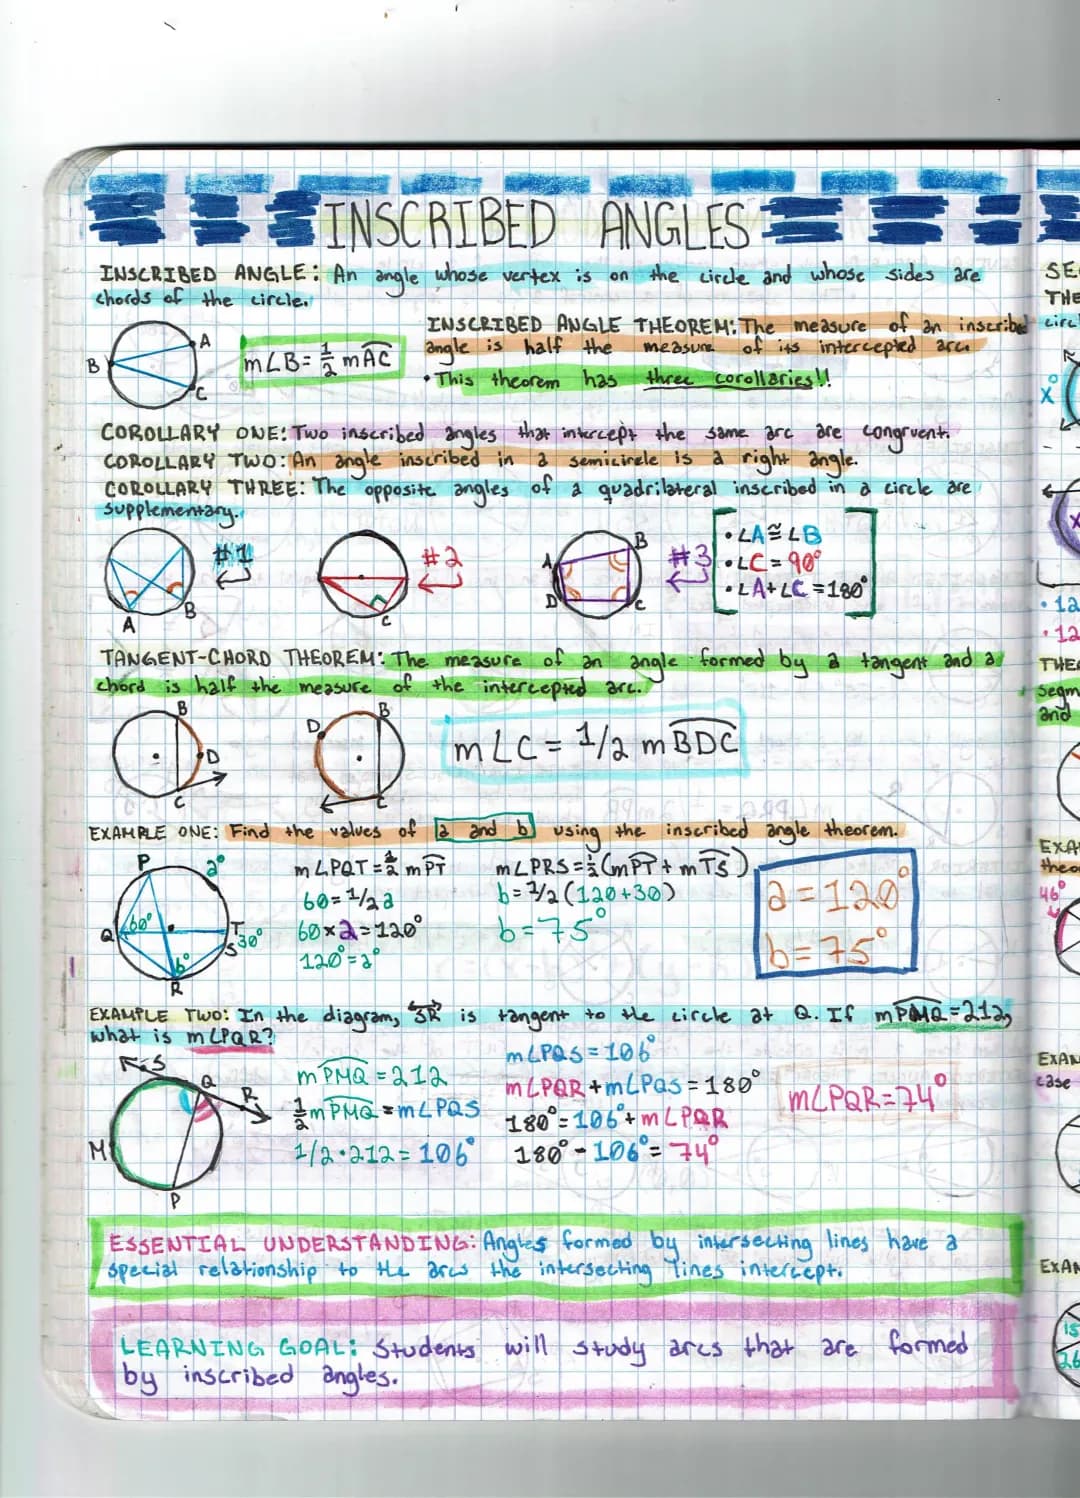 INSCRIBED ANGLES
INSCRIBED ANGLE: An angle whose vertex is on the circle and whose sides are
chords of the circle.
A
B
C
m∠B = 1/2 mAC
INSCRIBED ANGLE THEOREM: The measure of an inscribed
angle is half the measure of its intercepted arc.
• This theorem has three corollaries!!
COROLLARY ONE: Two inscribed angles that intercept the same arc are congruent.
COROLLARY TWO: An angle inscribed in a semicircle is a right angle.
COROLLARY THREE: The opposite angles of a quadrilateral inscribed in a circle are
supplementary.
A
B
#1
C
#2
A
B
C
D
#3
• ∠A ≅ ∠B
• ∠C = 90°
• ∠A + ∠C = 180°
TANGENT-CHORD THEOREM: The measure of an angle formed by a tangent and a
chord is half the measure of the intercepted arc.
B
D
C
D
B
C
m∠C = 1/2 mBDC
EXAMPLE ONE: Find the values of a and b using the inscribed angle theorem.
P
a°
Q
60°
T
S
30°
b°
R
m∠PQT = 1/2 mPT
60 = 1/2 a
60 x 2 = 120°
120° = a°
m∠PRS = 1/2 (mPT + mTS)
b = 1/2 (120 + 30)
b = 75°
a = 120°
b = 75°
EXAMPLE TWO: In the diagram, SR is tangent to the circle at Q. If mPMQ = 212,
what is m∠PQR?
S
Q
R
M
P
mPMQ = 212
1/2 mPMQ = m∠PQS
1/2 · 212 = 106°
m∠PQS = 106°
m∠PQR + m∠PQS = 180°
180° = 106° + m∠PQR
180° - 106° = 74°
m∠PQR = 74°
ESSENTIAL UNDERSTANDING: Angles formed by intersecting lines have a
special relationship to the arcs the intersecting lines intercept.
LEARNING GOAL: Students will study arcs that are formed
by inscribed angles.
SE
THE
circl
x°
X
• 12
• 12
THE
segm
and
EXA
theo
46°
EXAM
case
EXAM
is
26